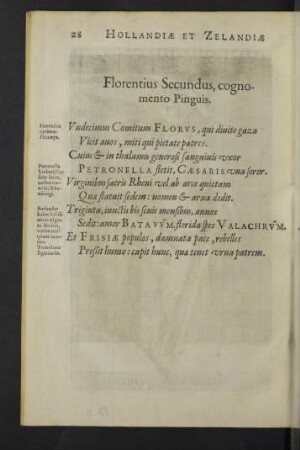 28 HOLLANDIÆ ET ZELANDIÆ
Florentius Secundus, cogno-
mento Pinguis.
Vndecimus Comitum FLORVS, qui diuite gaza
Vicit auos, miti qui pietate patres.
Cuius & in thalamis generosi sanguinis vxor
PETRONELLA stetit, CÆSARIS vna soror.
Virginibus sacris Rheni vel ab arce quietam
Quæ statuit sedem: nomen & arua dedit.
Triginta, iunctis bis senis mensibus, annos
Sedit: amor BATAVVM, florida spes VALACHRVM.
Et FRISIÆ populos, damnata pace, rebelles
Pressit humo: capit hunc, quæ tenet vrna patrem.